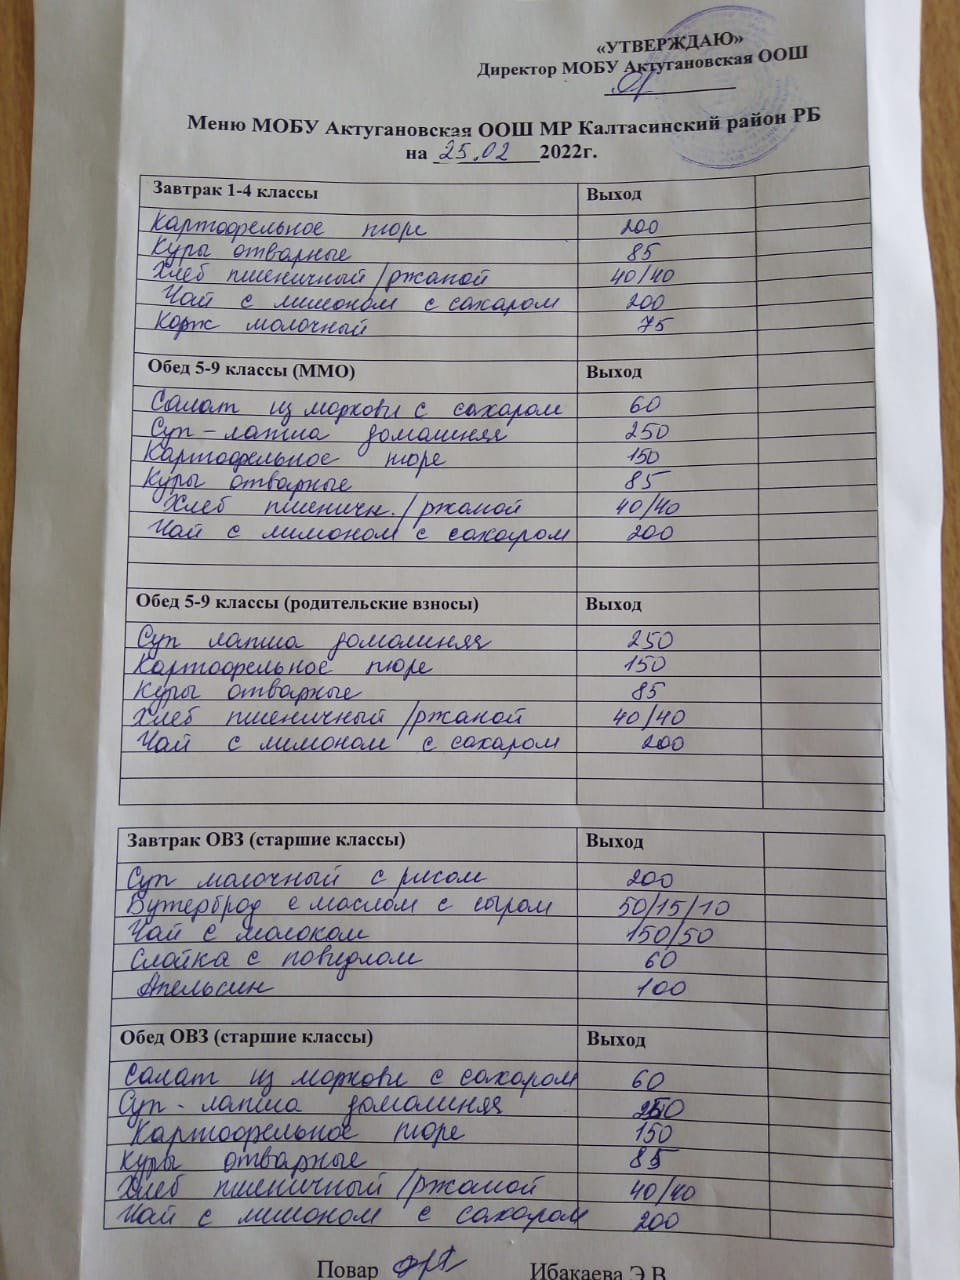 «УТВЕРЖДАЮ»
Директор МОБУ Актугановская ООШ
Меню МОБУ Актугановская ООШ МР Калтасинский район РБ
на 25.02 2022г.
Завтрак 1-4 классы Выход
Картофельное пюре 200
Куры отварные 85
Хлеб пшеничный/ржаной 40/40
Чай с лимоном с сахаром 200
Корж молочный 75
Обед 5-9 классы (ММО) Выход
Салат из моркови с сахаром 60
Суп-лапша домашняя 250
Картофельное пюре 150
Куры отварные 85
Хлеб пшеничн./ржаной 40/40
Чай с лимоном с сахаром 200
Обед 5-9 классы (родительские взносы) Выход
Суп лапша домашняя 250
Картофельное пюре 150
Куры отварные 85
Хлеб пшеничный/ржаной 40/40
Чай с лимоном с сахаром 200
Завтрак ОВЗ (старшие классы) Выход
Суп молочный с рисом 200
Бутерброд с маслом с сыром 50/15/10
Чай с молоком 150/50
Слойка с повидлом 60
Апельсин 100
Обед ОВЗ (старшие классы) Выход
Салат из моркови с сахаром 60
Суп-лапша домашняя 250
Картофельное пюре 150
Куры отварные 85
Хлеб пшеничный/ржаной 40/40
Чай с лимоном с сахаром 200
Повар Ибакаева Э.В